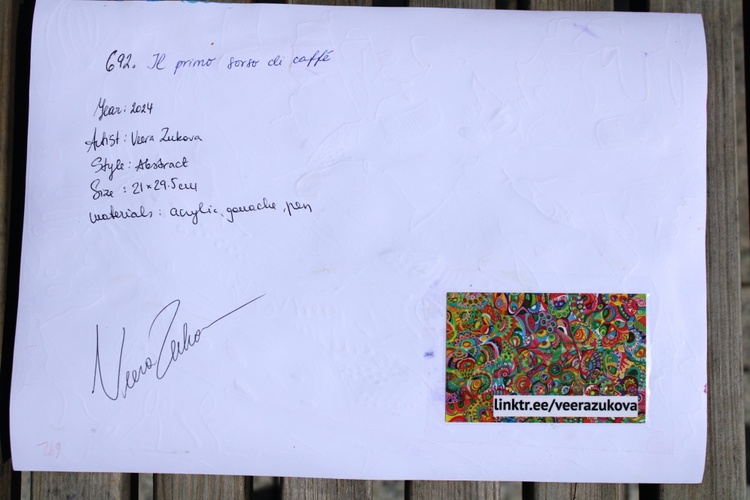 692. Il primo sorso di caffé
Year: 2024
Artist: Veera Zukova
Style: Abstract
Size: 21×29.5cm
materials: acrylic, gouache, pen
Veera Zuko
linktr.ee/veerazukova
269